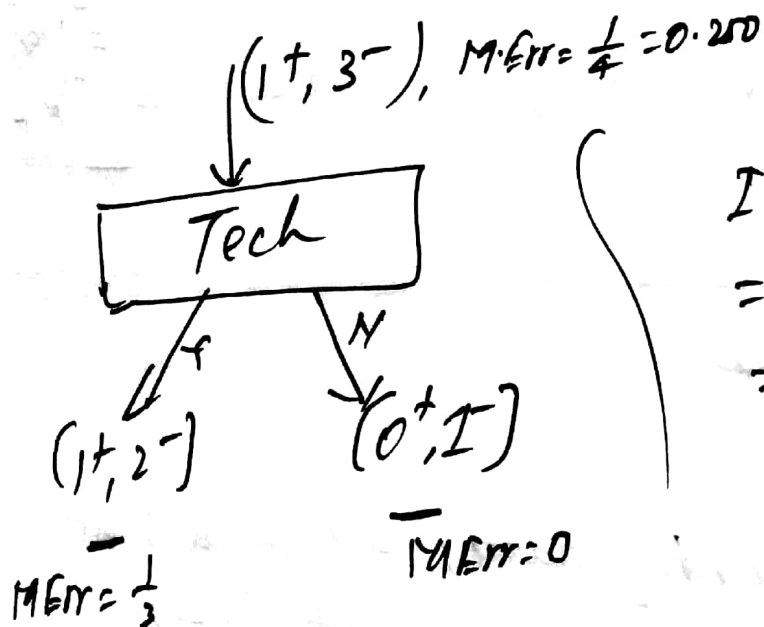 (1+, 3-), M.Err = 1/4 = 0.250
Tech
Y N
(1+, 2-) (0+, 1-)
— —
MErr = 1/3 MErr = 0
I
=
=